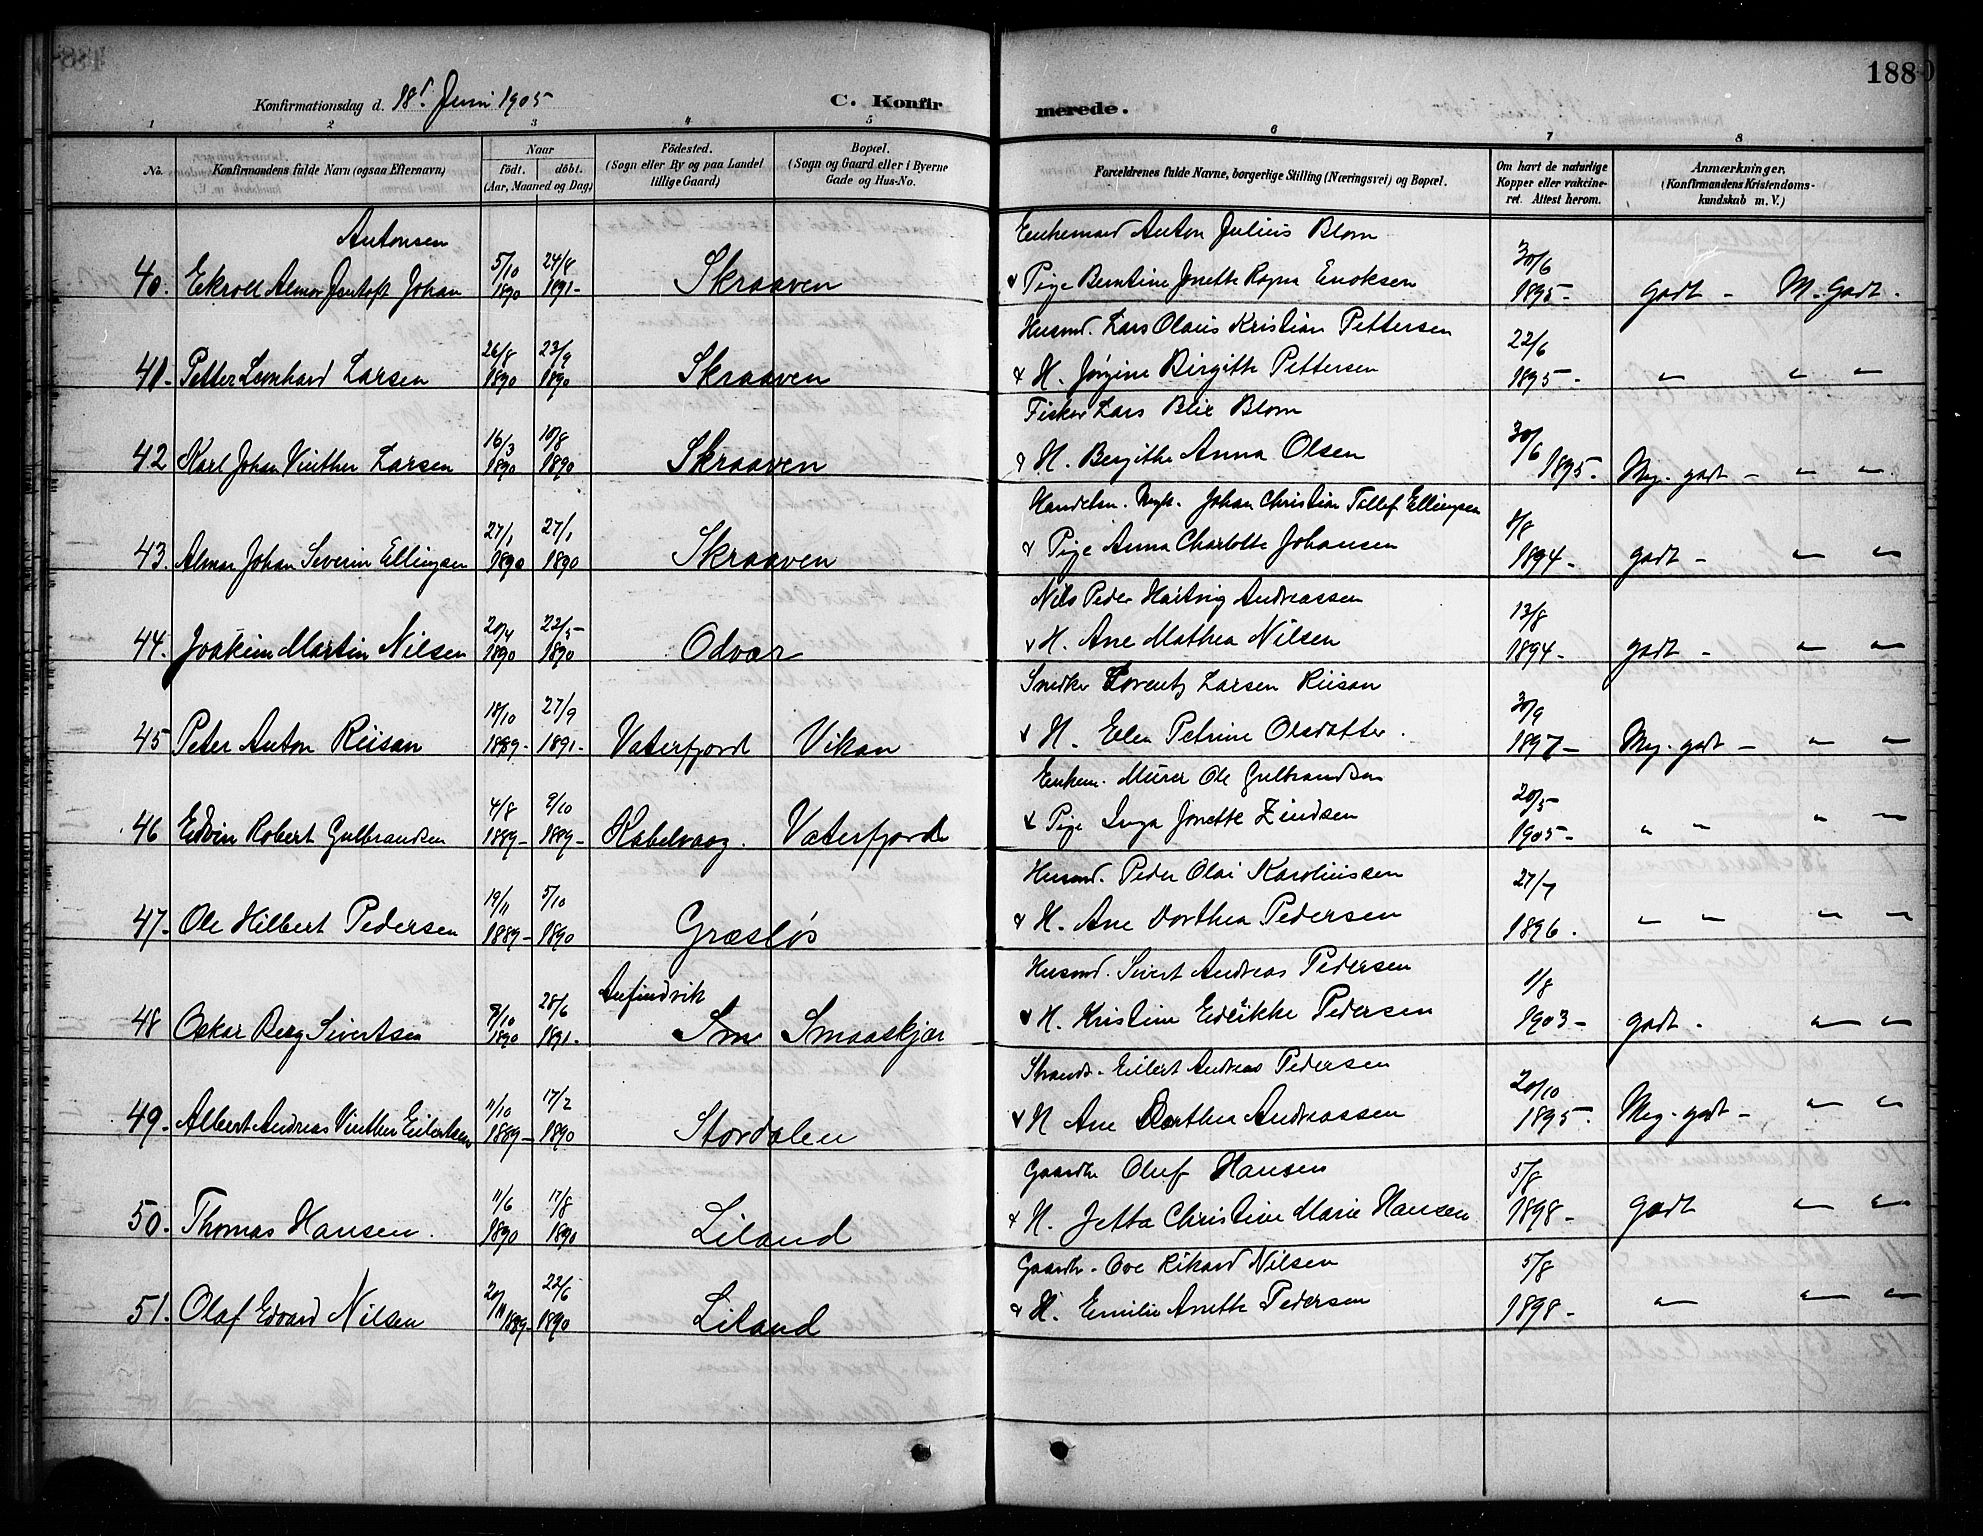 188
Konfirmationsdag d. 18. Juni 1905
C. Konfirmerede.
1 2 3 4 5 6 7 8
No.
Konfirmandens fulde Navn (ogsaa Efternavn)
Naar
födt. döbt.
(Aar, Maaned og Dag)
Födested.
(Sogn eller By og paa Landet
tillige Gaard)
Bopæl.
(Sogn og Gaard eller i Byerne
Gade og Hus-No.
Forældrenes fulde Navne, borgerlige Stilling (Næringsvei) og Bopæl.
Om havt de naturlige
Kopper eller vakcine-
ret. Attest herom.
Anmærkninger.
(Konfirmandens Kristendoms-
kundskab m. V.)
Antonsen
Enkemand Anton Julius Blom
40. Ekroll Almar Jentoft Johan 5/10 1890 24/8 1891- Skraaven
& Pige Berntine Jonette Ragna Enoksen 30/6 1895- godt - M. Godt.
Husmd. Lars Olaus Kristian Pettersen
41- Petter Leonhard Larsen 26/8 1890 23/9 1890 Skraaven
& H. Jørgine Birgithe Pettersen 22/6 1895- " " "
Fisker Lars Blix Blom
42 Karl Johan Vinther Larsen 16/3 1890 10/8 1890 Skraaven
& H. Bergithe Anna Olsen 30/6 1895. Meg. godt - " "
Handelsm. Johan Christian Tollef Ellingsen
43. Almar Johan Severin Ellingsen 27/1 1890 27/1 1890 Skraaven
& Pige Anna Charlotte Johansen 8/8 1894- godt - " "
Nils Peder Hartvig Andreassen
44. Joakim Martin Nilsen 20/4 1890 22/5- 1890 Odvær
& H. Ane Mathea Nilsen 13/8 1894- godt - " "
Snedker Lorentz Larsen Riisan
45 Peter Anton Riisan 18/10 1889- 27/9 1891- Vaterfjord Vikan
& H. Elen Petrine Olsdatter. 30/9 1897- Meg. godt - " "
Enkem. Murer Ole Gulbrandsen
46 Edvin Robert Gulbrandsen 4/8 1889- 9/10 1889- Kabelvaag. Vaterfjord
& Pige Inga Jonette Zindsen 20/5 1905- " " " "
Husmd. Peder Olai Karoliussen
47. Ole Hilbert Pedersen 19/11 1889- 5/10 1890 Græsløs
& H. Ane Dorthea Pedersen 27/7 1896. " " " "
Husmd. Sivert Andreas Pedersen
Anfindvik
48 Oskar Berg Sivertsen 9/10 1890 28/6 1891- Sm Smaaskjær
& H. Kristine Edrikke Pedersen 1/8 1903- godt. " "
Strands. Eilert Andreas Pedersen
49. Albert Andreas Vinther Eilertsen 11/10 1889- 17/2 1890 Stordalen
& H Ane Dorthea Andreassen 20/10 1895- Meg. godt - " "
Gaardbr Oluf Hansen
50. Thomas Hansen. 11/6 1890 17/8 1890 Liland
& H. Jetta Christine Marie Hansen 5/8 1898- godt " "
Gaardbr. Ove Rikard Nilsen
51. Olaf Edvard Nilsen 20/11 1889- 22/6 1890 Liland
& H. Emilie Anette Pedersen 5/8 1898- " " "